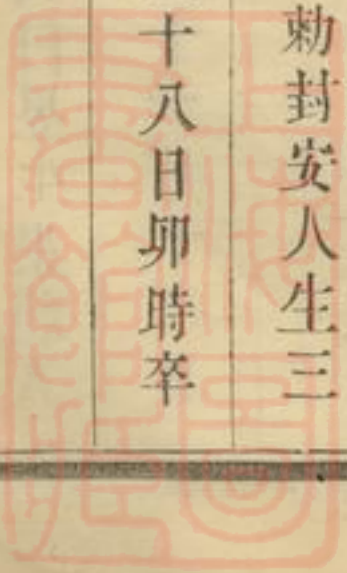 勅封安人生三
十八日卯時卒